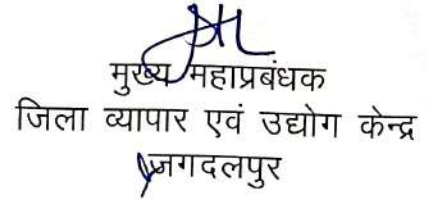 मुख्य महाप्रबंधक
जिला व्यापार एवं उद्योग केन्द्र
जगदलपुर